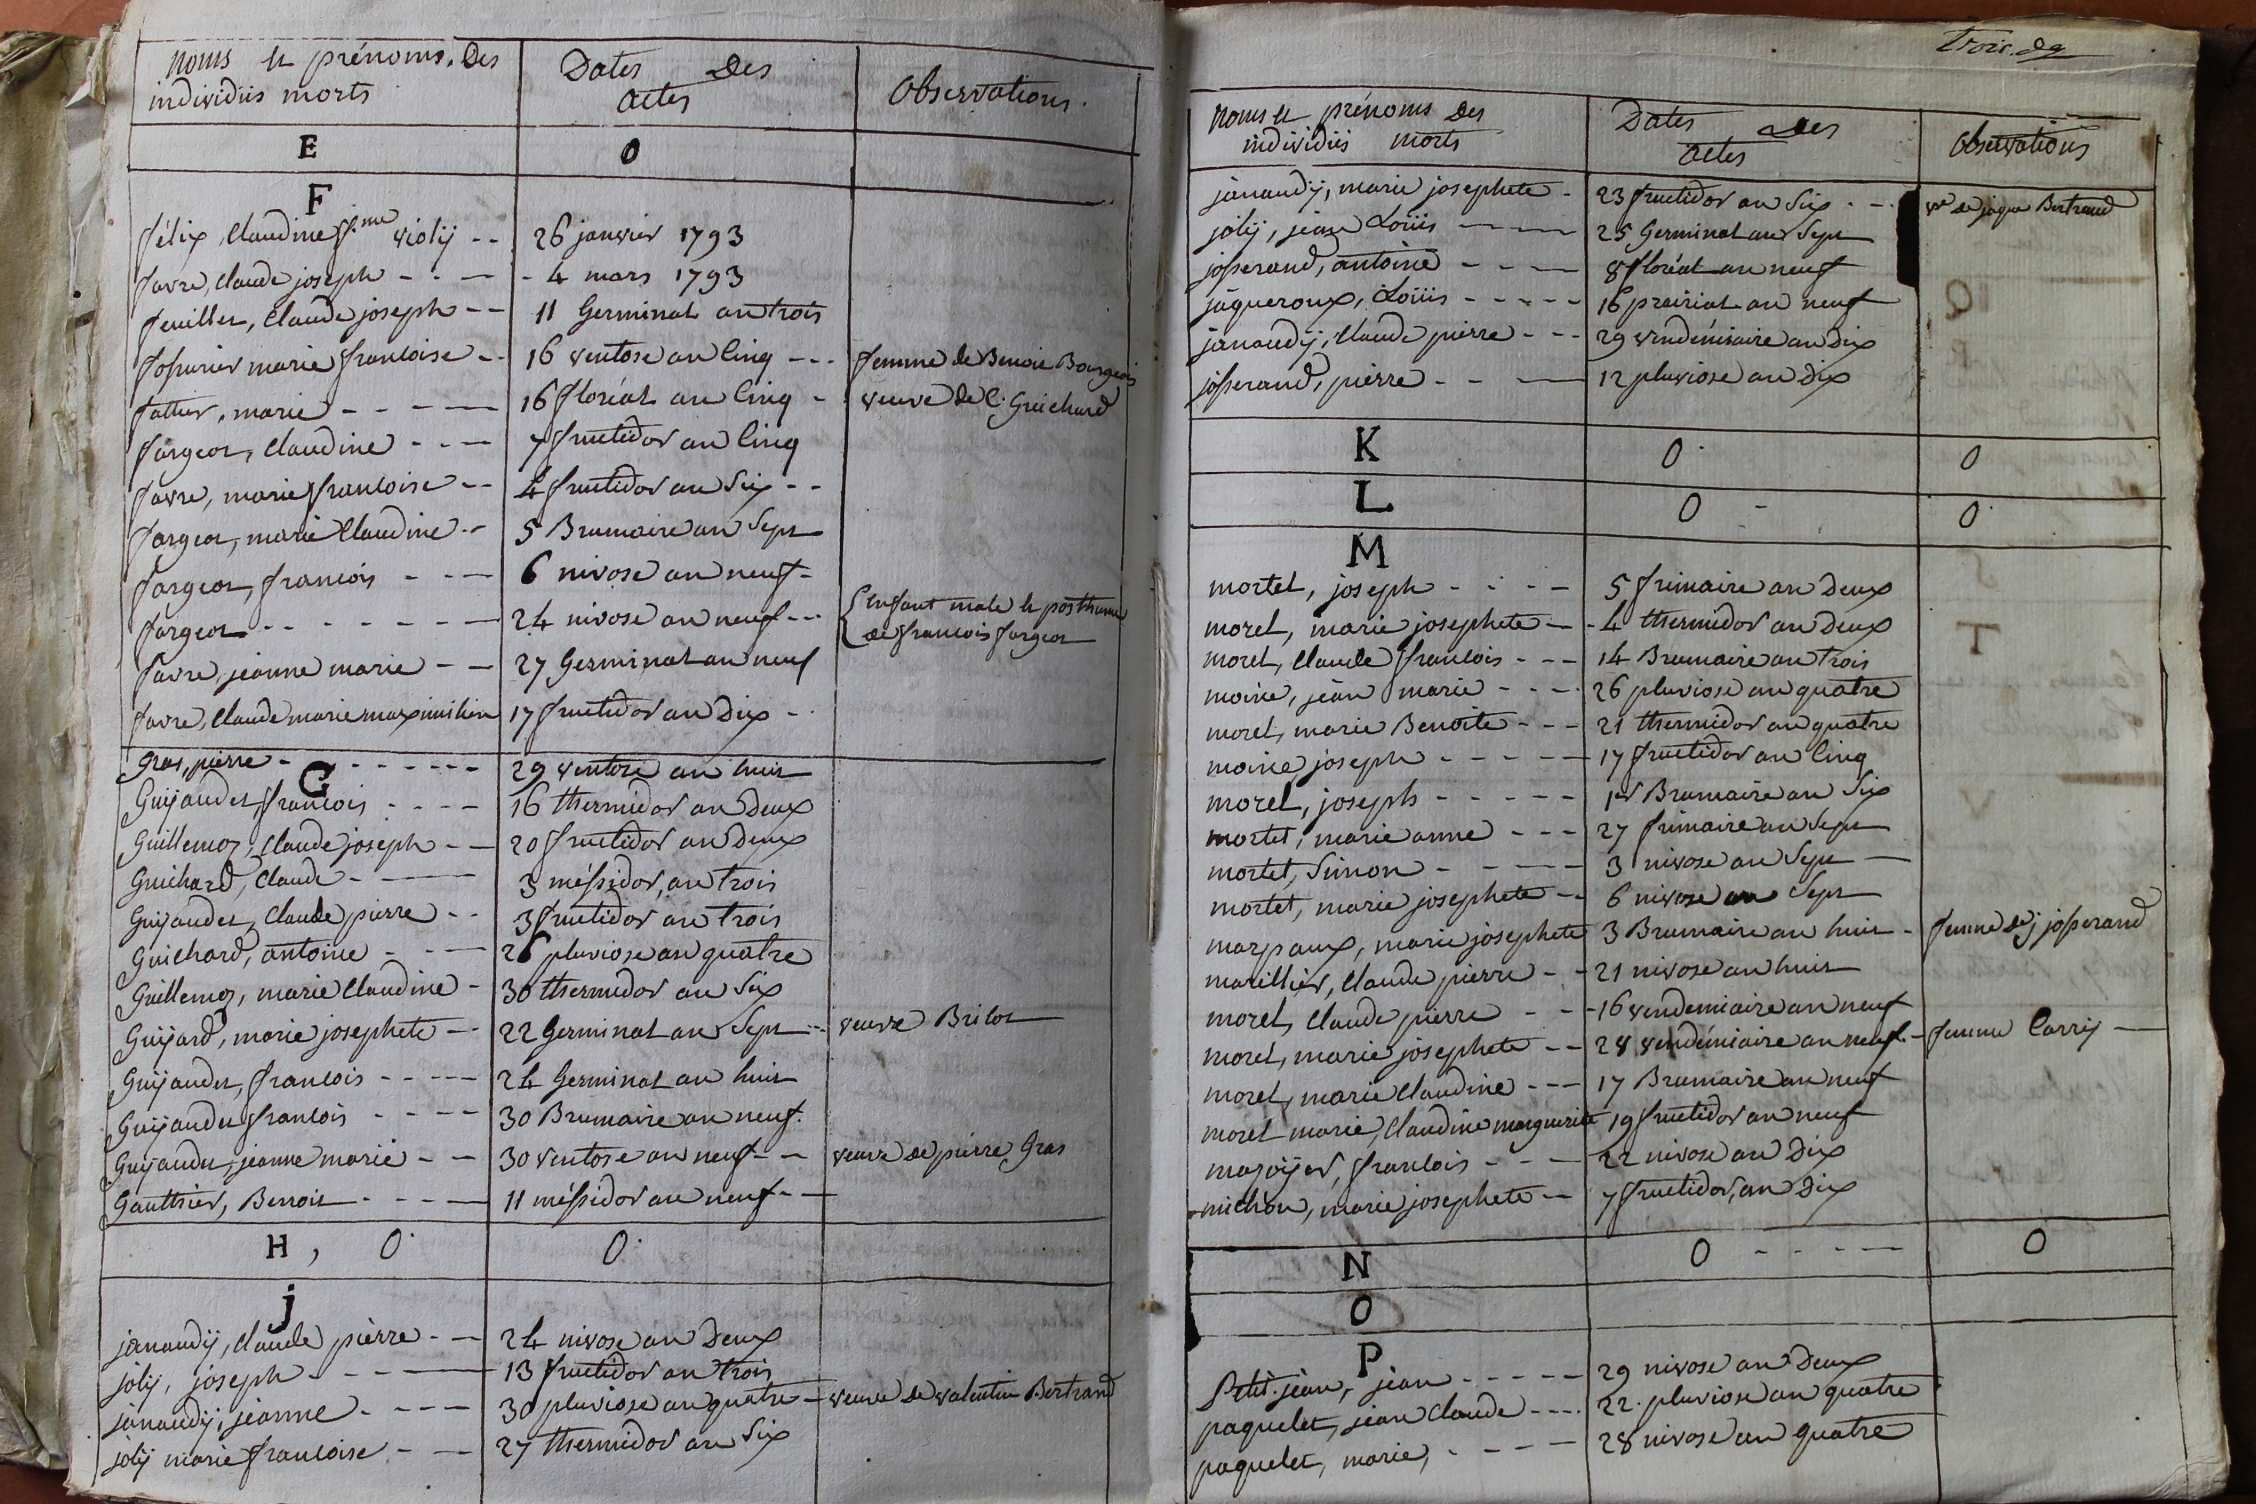 noms et prénoms Des individüs morts | Dates Des actes | observations.
E | 0
F
félix, Claudine f.me violÿ -- | 26 janvier 1793
favre, Claude joseph - - - | 4 mars 1793
feuillet, Claude joseph -- | 11 Germinal an trois
fossurier marie francoise -- | 16 ventose an Cinq --- | femme de Benoit Bourgeois
fattier, marie - - - - - | 16 floréal an Cinq - | veuve de C. Guichard
fargeot, Claudine - - - | 7 fructidor an Cinq
favre, marie francoise -- | 4 fructidor an Six --
fargeot, marie Claudine -- | 5 Brumaire an Sept
fargeot, francois - - - | 6 nivose an neuf -
fargeot - - - - - - - | 24 nivose an neuf --- | { Enfant male et posthume
de francois fargeot
favre, jeanne marie - - | 27 Germinal an neuf
favre, Claude marie maximilien | 17 fructidor an Dix -
Gras, pierre - - - - - - | 29 ventose an huit
G
Guÿaudet, francois - - - - | 16 thermidor an Deux
Guillemoz, Claude joseph - - | 20 fructidor an Deux
Guichard, Claude - - - | 3 méssidor, an trois
Guÿaudet, Claude pierre - - | 3 fructidor an trois
Guichard, antoine - - - | 26 pluviose an quatre
Guillemoz, marie Claudine - | 30 thermidor an Six
Guÿard, marie josephete -- | 22 Germinal an Sept --- | veuve Brilot
Guÿaudet, francois - - - - | 24 Germinal an huit
Guÿaudet francois - - - - | 30 Brumaire an neuf.
Guÿaudet, jeanne marie - - | 30 ventose an neuf - - | veuve de pierre Gras
Gauthier, Benoit - - - - | 11 méssidor an neuf - -
H, 0 | 0
j
janaudÿ, Claude pierre - - | 24 nivose an Deux
jolÿ, joseph - - - - | 13 fructidor an trois
janaudÿ, jeanne - - - - | 30 pluviose an quatre - | veuve de valentin Bertrand
jolÿ marie francoise - - | 27 thermidor an Six
noms et prénoms Des individüs morts | Dates Des actes | observations
janaudÿ, marie josephete - | 23 fructidor an Six - - | ve de jaque Bertrand
jolÿ, jean Loüis - - - | 25 Germinal an Sept
josserand, antoine - - - | 8 floréal an neuf
jaqueroux, Loüis - - - - - | 16 prairial an neuf
janaudÿ, Claude pierre - - - | 29 vendémiaire an Dix
josserand, pierre - - - | 12 pluviose an Dix
K | 0 | 0
L | 0 - | 0
M
mortet, joseph - - - - | 5 frimaire an Deux
morel, marie josephete - - | 4 thermidor an Deux
morel, Claude francois - - - | 14 Brumaire an trois
moine, jean marie - - - | 26 pluviose an quatre
morel, marie Benoite - - - | 21 thermidor an quatre
moine, joseph - - - - - | 17 fructidor an Cinq
morel, joseph - - - - - | 1er Brumaire an Six
mortet, marie anne - - - | 27 frimaire an Sept
mortet, Simon - - - - - | 3 nivose an Sept -
mortet, marie josephete - - | 6 nivose an Sept
marpaux, marie josephete | 3 Brumaire an huit - | femme de j josserand
marillier, Claude pierre - - | 21 nivose an huit
morel, Claude pierre - - | 16 vendemiaire an neuf
morel, marie josephete - - | 28 vendémiaire an neuf - | femme Carrÿ -
morel, marie Claudine - - - | 17 Brumaire an neuf
morel marie, Claudine marguerite | 19 fructidor an neuf
mazoÿer, francois - - - | 22 nivose an Dix
michon, marie josephete - - | 7 fructidor, an Dix
N | 0 - - - - | 0
O
P
Petit-jean, jean - - - - - | 29 nivose an Deux
paquelet, jean Claude - - - | 22 pluviose an quatre
paquelet, marie, - - - - | 28 nivose an quatre